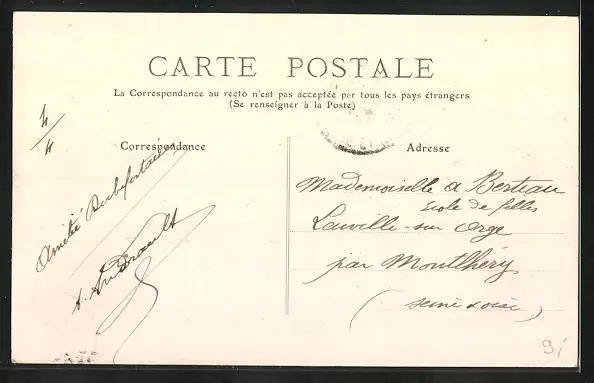 CARTE POSTALE
La Correspondance au recto n'est pas acceptée par tous les pays étrangers
(Se renseigner à la Poste)
Correspondance
4/4
Amitié
A. Andrault
Adresse
Mademoiselle A Berteau
Ecole de filles
Leuville-sur Orge
par Montlhéry
(Seine & Oise)